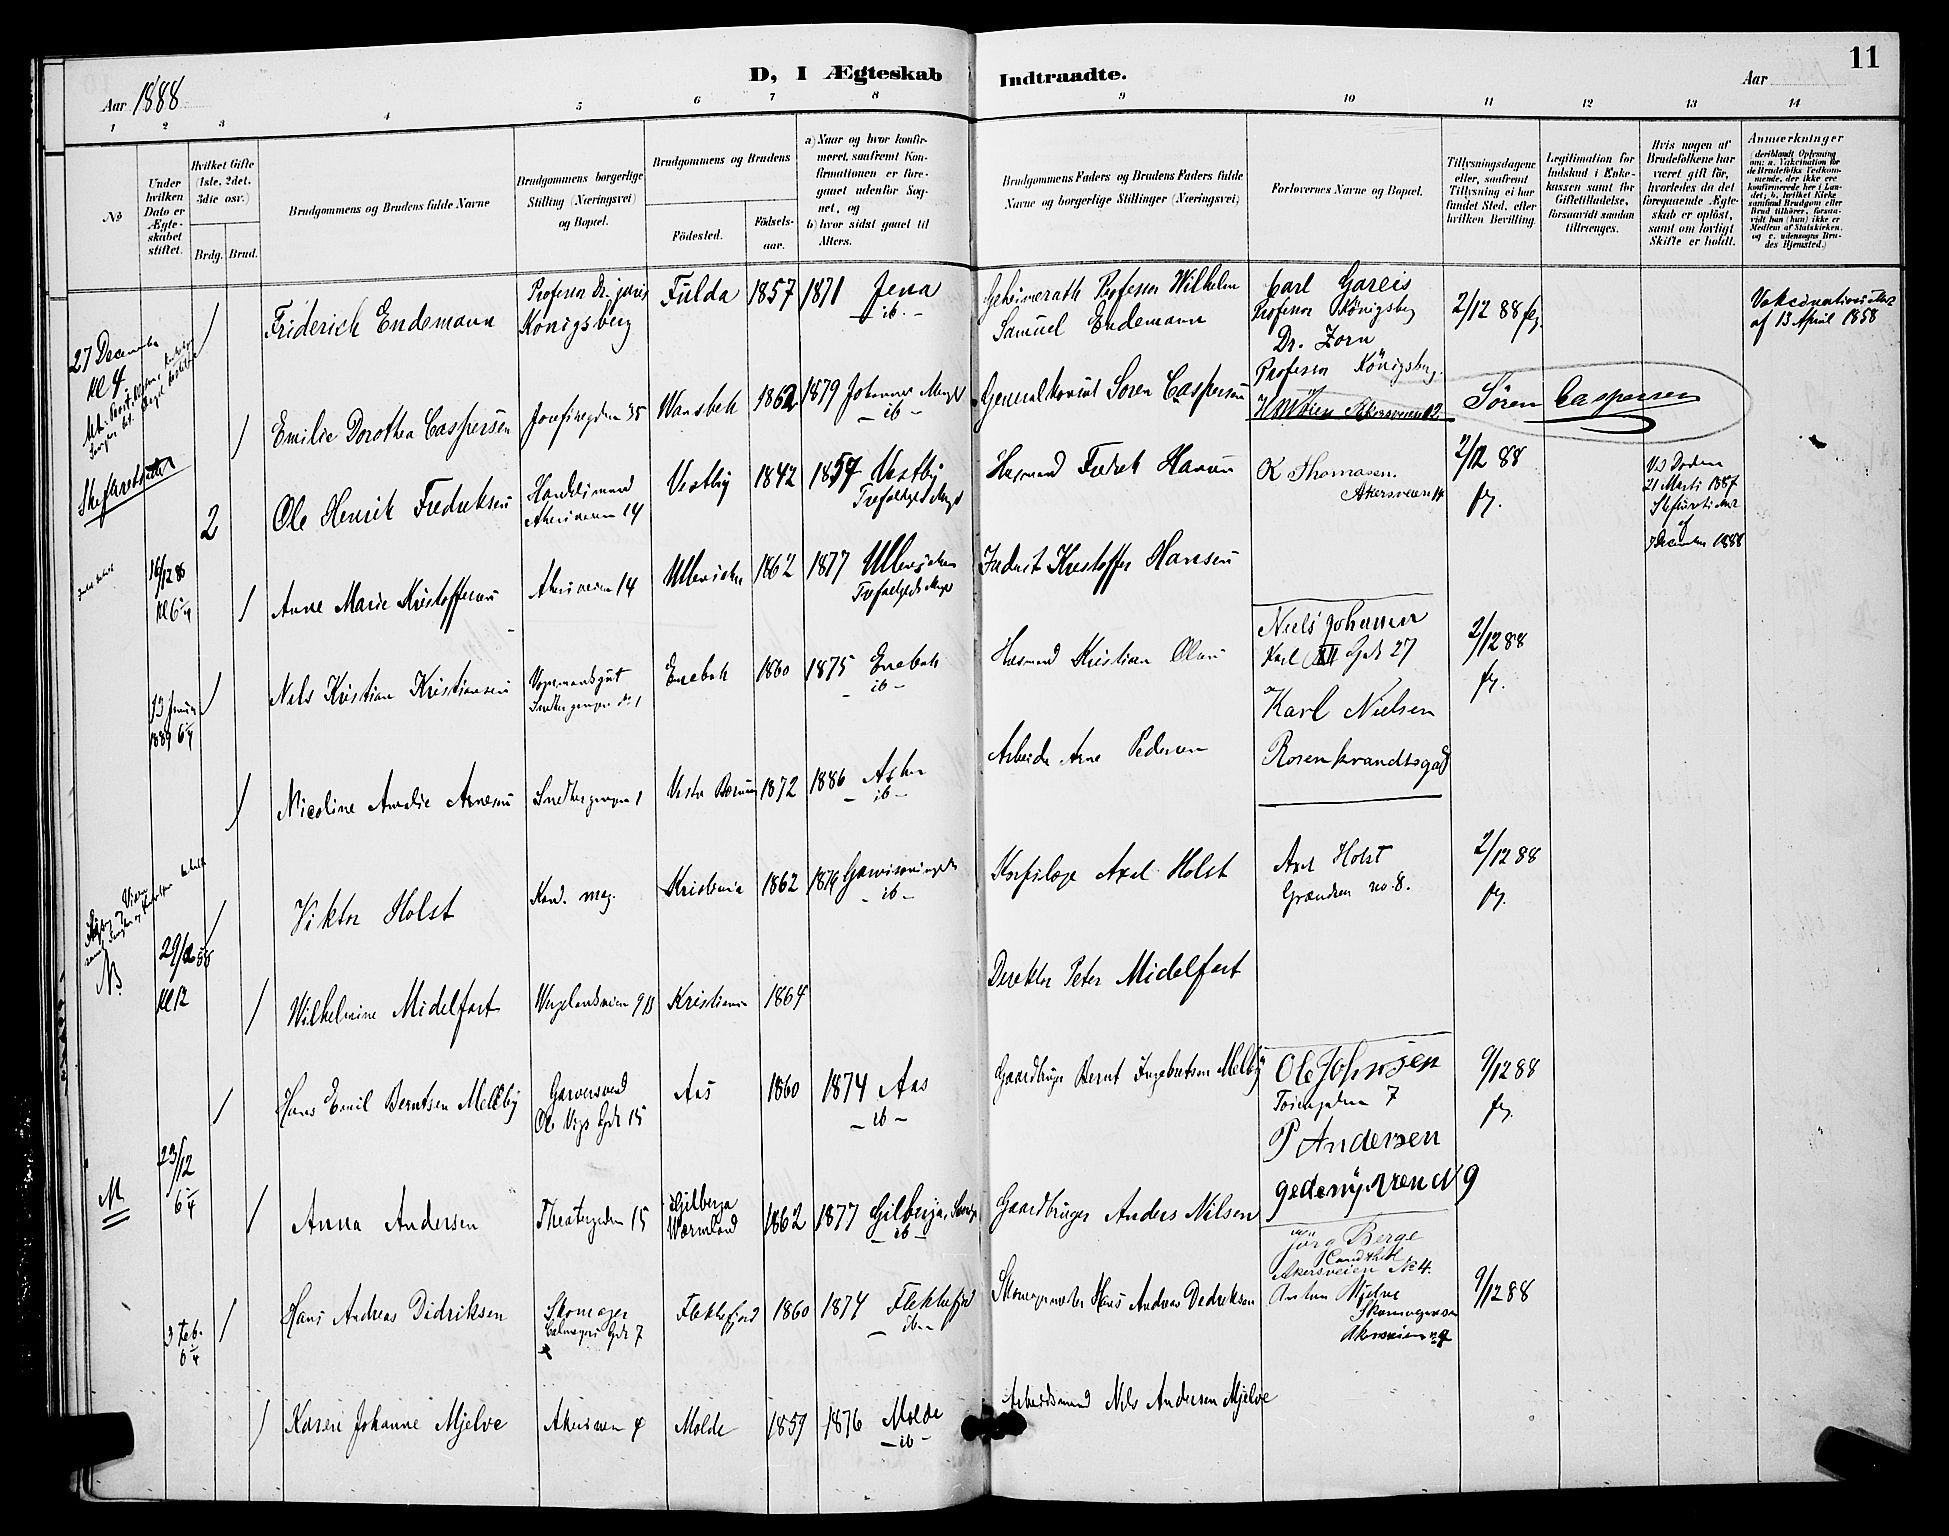 11
D, I Ægteskab Indtraadte.
Aar 1888
Aar
1 2 3 4 5 6 7 8 9 10 11 12 13 14
No
Under hvilken Dato er Ægteskabet stiftet.
Hvilket Gifte (1ste, 2det, 3die osv.)
Brdg. Brud.
Brudgommens og Brudens fulde Navne
Brudgommens borgerlige Stilling (Næringsvei) og Bopæl.
Brudgommens og Brudens
Födested.
Födselsaar.
a) Naar og hvor konfirmeret, saafremt Konfirmationen er foregaaet udenfor Sognet, og
b) hvor sidst gaaet til Alters.
Brudgommens Faders og Brudens Faders fulde Navne og borgerlige Stillinger (Næringsvei)
Forlovernes Navne og Bopæl.
Tillysningsdagene eller, saafremt Tillysning ei har fundet Sted, efter hvilken Bevilling.
Legitimation for Indskud i Enkekassen samt for Giftetilladelse, forsaavidt saadan tiltrænges.
Hvis nogen af Brudefolkene har været gift för, hvorledes da det foregaaende Ægteskab er oplöst, samt om lovligt Skifte er holdt.
Anmærkninger
(deriblandt Oplysning om: a. Vakcination for de Brudefolks Vedkommende, der ikke ere konfirmerede her i Landet; b. hvilket Kirkesamfund Brudgom eller Brud tilhörer, forsaavidt han (hun) ikke er Medlem af Statskirken, og c. udensogns Brudes Hjemsted.)
27 December
Kl 4
/ Friderich Endemann
Professor Dr. juris
Königsberg
Fulda 1857 1871 Jena
- ib. -
Geheimerath Professor Wilhelm
Samuel Endemann
Carl Gareis
Professor Königsberg
Dr. Zorn
Professor Königsberg.
2/12 88
af 13 April 1858
/ Emilie Dorothea Caspersen
Josefinegaden 35
Wansbek 1862 1879 Johannes Mengh
- ib -
Generalkonsul Sören Caspersen
Akersveien 12
Sören Caspersen
2 Ole Henrik Fredriksen
Handelsmand
Akersveien 14
Vestby 1842 1857 Vestby
Trefoldigheds Mengh
Husmand Fredrik Hansen
K Thomasen.
Akersveien 14
2/12 88
Ved Döden
21 Marts 1887
Skifteattest
af
December 1888
16/12 88
Kl 6
/ Anne Marie Kristoffersen
Akersveien 14
1862 1877
Trefoldigheds Mengh
Kristoffer Hansen
13 Januar
1889
/ Nels Kristian Kristiansen
Vognmandsgut
Enebak 1860 1875 Enebak
- ib -
Husmand Kristian Olsen
Niels Johansen
Karl XII Gade 27
2/12 88
Karl Nielsen
Rosenkrandtsgad
/ Nicoline Amalie Arnesen
Vestre Bærum 1872 1886 Asker
- ib -
Arbeider Arne Pedersen
NB.
29/12 88
Kl 12
/ Viktor Holst
Kand. mag.
Kristiania 1862
- ib -
Axel Holst
Axel Holst
Grændsen no. 8.
2/12 88
/ Wilhelmine Midelfart
Kristiania 1864
Direktör Peter Midelfart
23/12
6¼
/ Hans Emil Berntsen Mellby
Garversvend
Ole Vigs Gde 15
Aas 1860 1874 Aas
- ib -
Gaardbruger Bernt Ingebretsen Melby
Ole Johnsen
Töiengaden 7
P Andersen
9/12 88
/ Anna Andersen
Theatergaden 15
Gilberga
Wermland
1862 1877 Gilberga,
- ib -
Gaardbruger Anders Nilsen
3 Feb.
6¼
/ Hans Andreas Didriksen
Skomager
Calmeyers Gde 7
Flekkefjord 1860 1874 Flekkefjord
Skomagermester Hans Andreas Dedriksen
Berge
Cand theol
Akersveien No 4.
Anton Mjelve
Skomagersven
Akersveien
9/12 88
/ Karen Johanne Mjelve
Akersveien 4
Molde 1859 1876 Molde
- ib -
Arbeidsmand Nels Andersen Mjelve